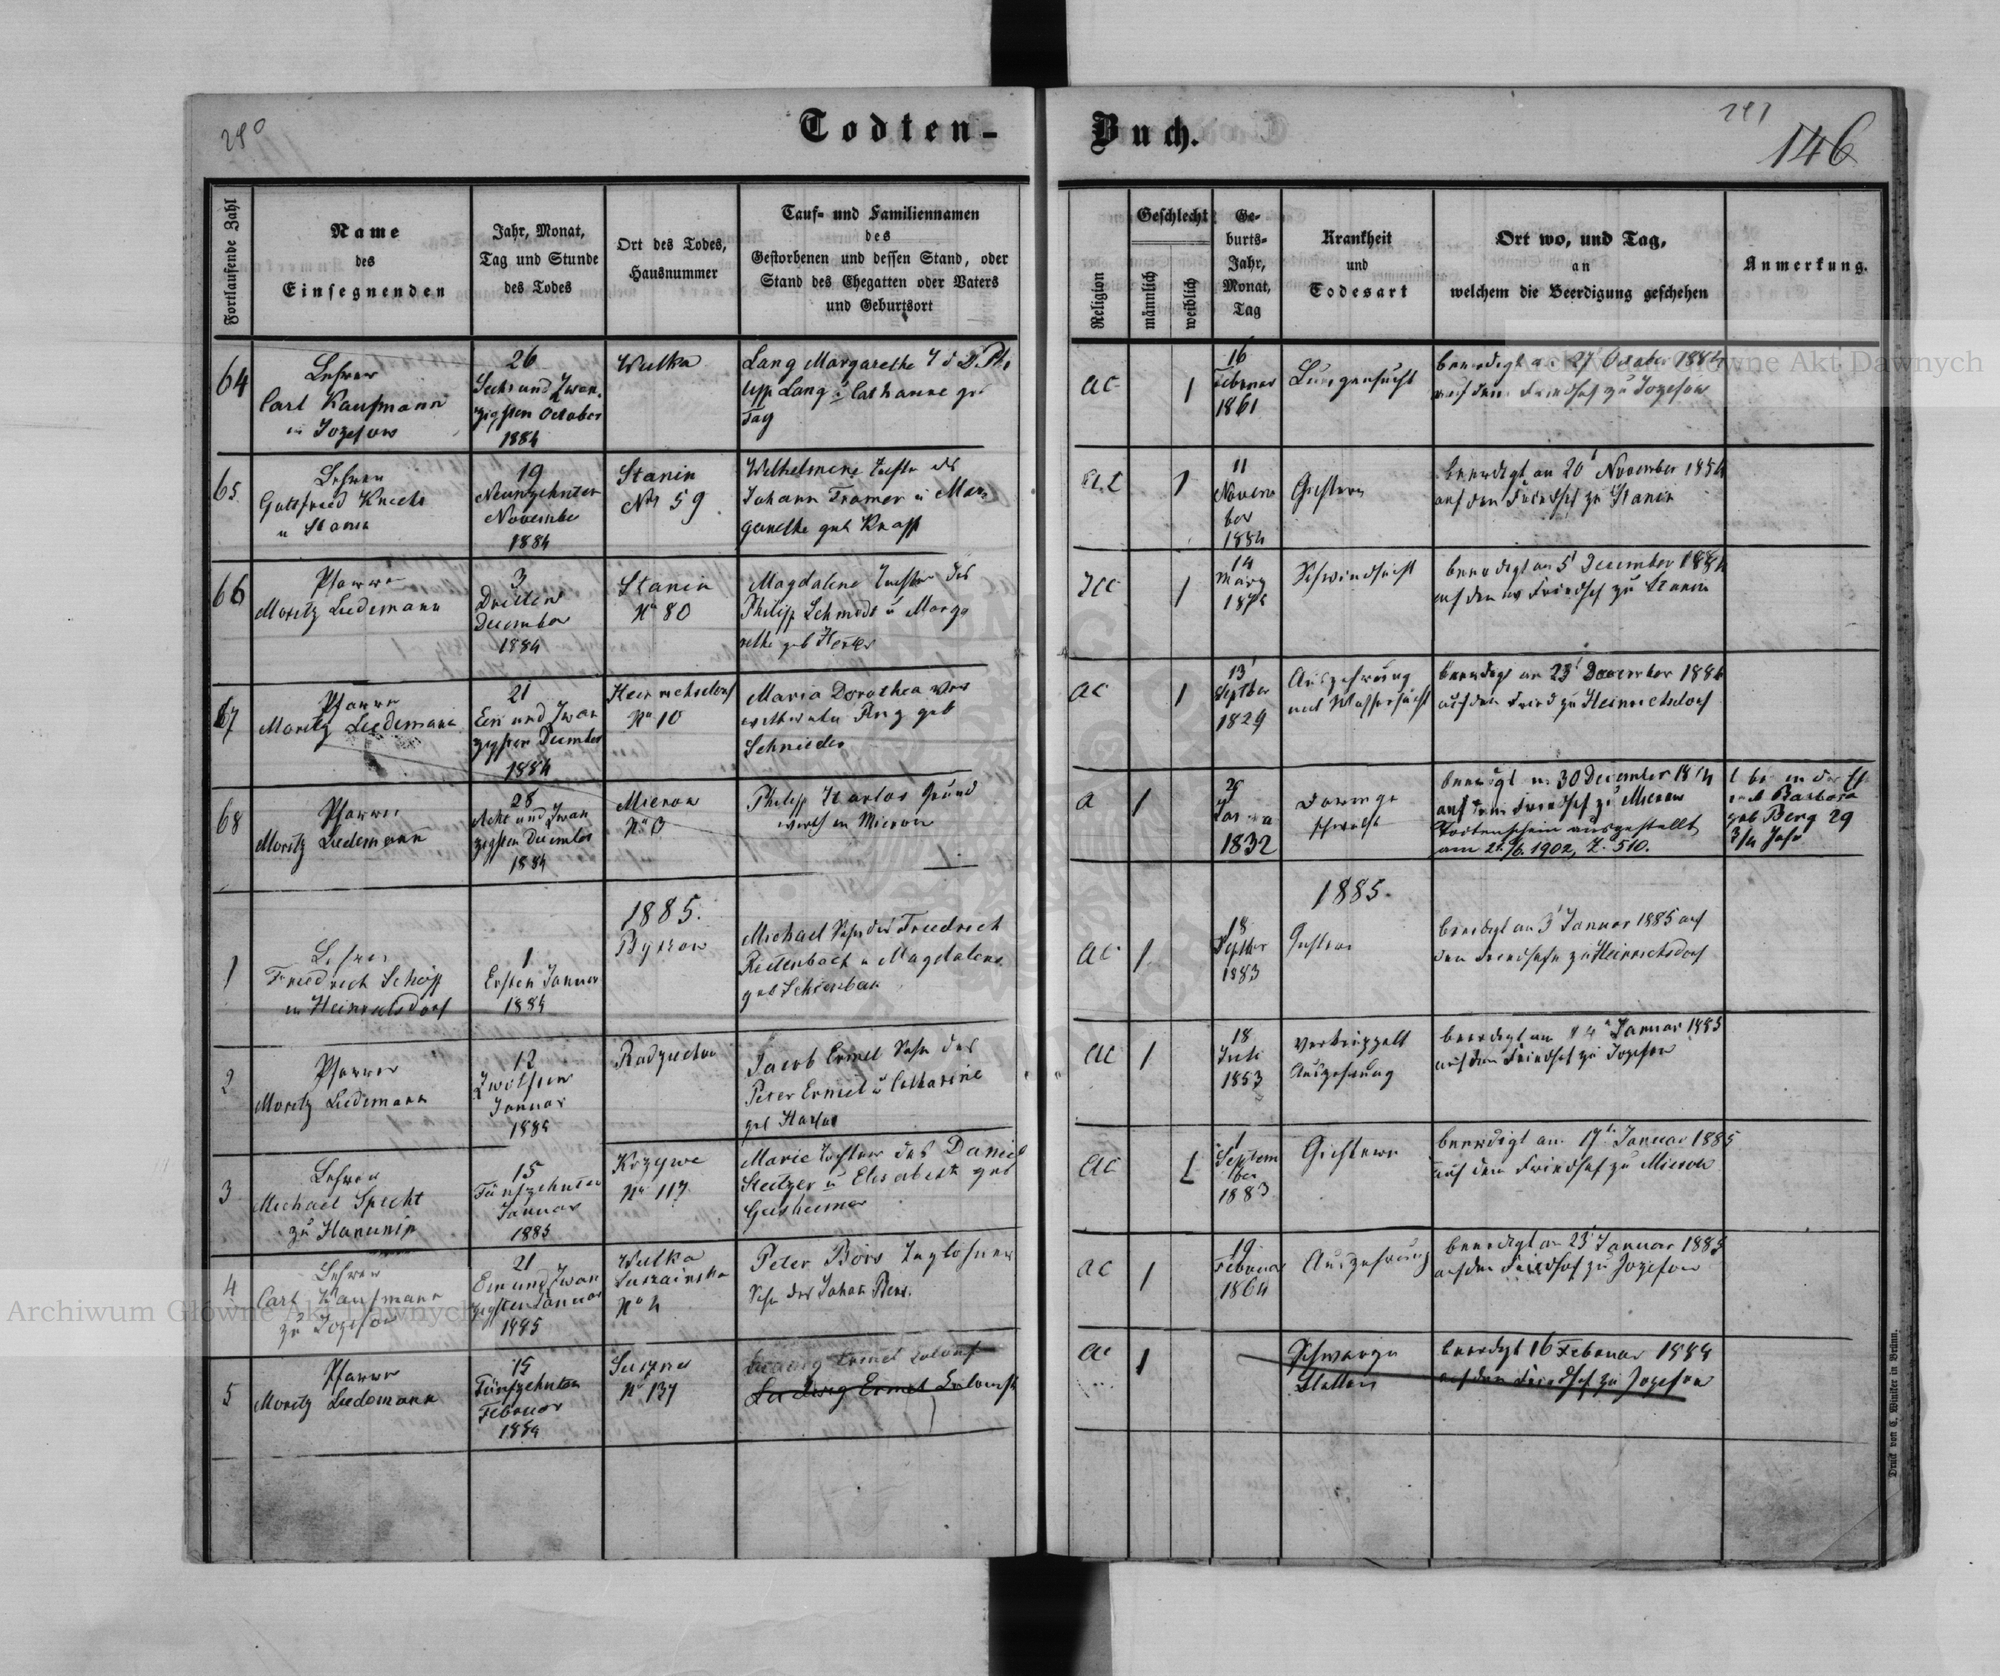 240
Todten-
Buch.
241
146
Fortlaufende Zahl
Name
des
Einsegnenden
Jahr, Monat,
Tag und Stunde
des Todes
Ort des Todes,
Hausnummer
Tauf- und Familiennamen
des
Gestorbenen und dessen Stand, oder
Stand des Ehegatten oder Vaters
und Geburtsort
Religion
Geschlecht
männlich
weiblich
Ge-
burts-
Jahr,
Monat,
Tag
Krankheit
und
Todesart
Ort wo, und Tag,
an
welchem die Beerdigung geschehen
Anmerkung.
64
Lehrer
Carl Kaufmann
in Jozefow
26
Sechs und Zwan
zigsten October
1884
Wulka
Lang Margarethe
Lang u Catharine
AC
1
16
Februar
1861
Lungensucht
beerdigt 27 October 1884
auf dem Friedhof zu Jozefow
65
Lehrer
Gottfried Knecht
Stanin
19
Neunzehnten
November
1884
Stanin
No 59
Wilhelmine Tochter des
Johann Tramer u Mar
garethe geb Knopf
1
11
Novem
ber
1884
beerdigt am 20 November 1884
auf dem Friedhof zu Stanin
66
Pfarrer
Moritz Ludemann
3
Dritten
December
1884
Stanin
No 80
Magdalene Tochter des
Philipp Schmidt u Marga
rethe geb
1
14
März
Schwindsucht
beerdigt am 5 December 1884
auf dem Friedhof zu Stanin
67
Pfarrer
Moritz Ludemann
21
Ein und Zwan
zigsten December
1884
Heinrichsdorf
No 10
Maria Dorothea ver
wittwete geb
Schneider
AC
1
13
Septber
1829
Auszehrung
und Wassersucht
beerdigt am 23 December 1884
auf dem Fried zu Heinrichsdorf
68
Pfarrer
Moritz Ludemann
28
Acht und Zwan
zigsten December
1884
Mierow
No 3
Philipp Harlos Grund
wirth in Mierow
A
1
1832
beerdigt 30 December
auf dem Friedhof zu Mierow
Todtenschein ausgestellt
am 21./6. 1902, Z. 510.
in der
mit Barbara
geb Berg 29
3/4 Jahr
1885.
1885.
1
Lehrer
Friedrich Schöpp
in Heinrichsdorf
1
Ersten Januar
1884
Byszow
Michael Sohn des Friedrich
Rietenbach u Magdalena
geb
AC
1
18
Septber
1883
beerdigt am 3 Januar 1885 auf
dem Friedhofe zu Heinrichsdorf
2
Pfarrer
Moritz Ludemann
12
Zwölften
Januar
1885
Radziechow
Jacob Ermel Sohn des
Peter Ermel u Catharine
geb Harlos
AC
1
18
Juli
1853
verkrüppelt
Auszehrung
beerdigt am 14 Januar 1885
auf dem Friedhof zu Jozefow
3
Lehrer
Michael Specht
zu Hanunin
15
Fünfzehnten
Januar
1885
Krzywe
No 117
Marie Tochter des Daniel
Steitzer u Elisabeth geb
Geisheimer
AC
1
1
Septem
ber
1883
beerdigt am 17 Januar 1885
auf dem Friedhof zu Mierow
4
Lehrer
Carl Kaufmann
zu Jozefow
21
Ein und Zwan
zigsten Januar
1885
Wulka
Suszainska
No 4
Peter Börs Taglöhner
Sohn des Johan Börs.
AC
1
19
Februar
1864
Auszehrung
beerdigt am 23 Januar 1885
auf dem Friedhof zu Jozefow
5
Pfarrer
Moritz Ludemann
15
Fünfzehnten
Februar
1884
Suszno
No 137
Ludwig Ermel Colonist
Ludwig Ermel Colonist
AC
1
Schwarze
Blattern
beerdigt 16 Februar 1884
auf dem Friedhof zu Jozefow
Druck von C. Winiker in Brünn.
Archiwum Główne Akt Dawnych
Archiwum Główne Akt Dawnych